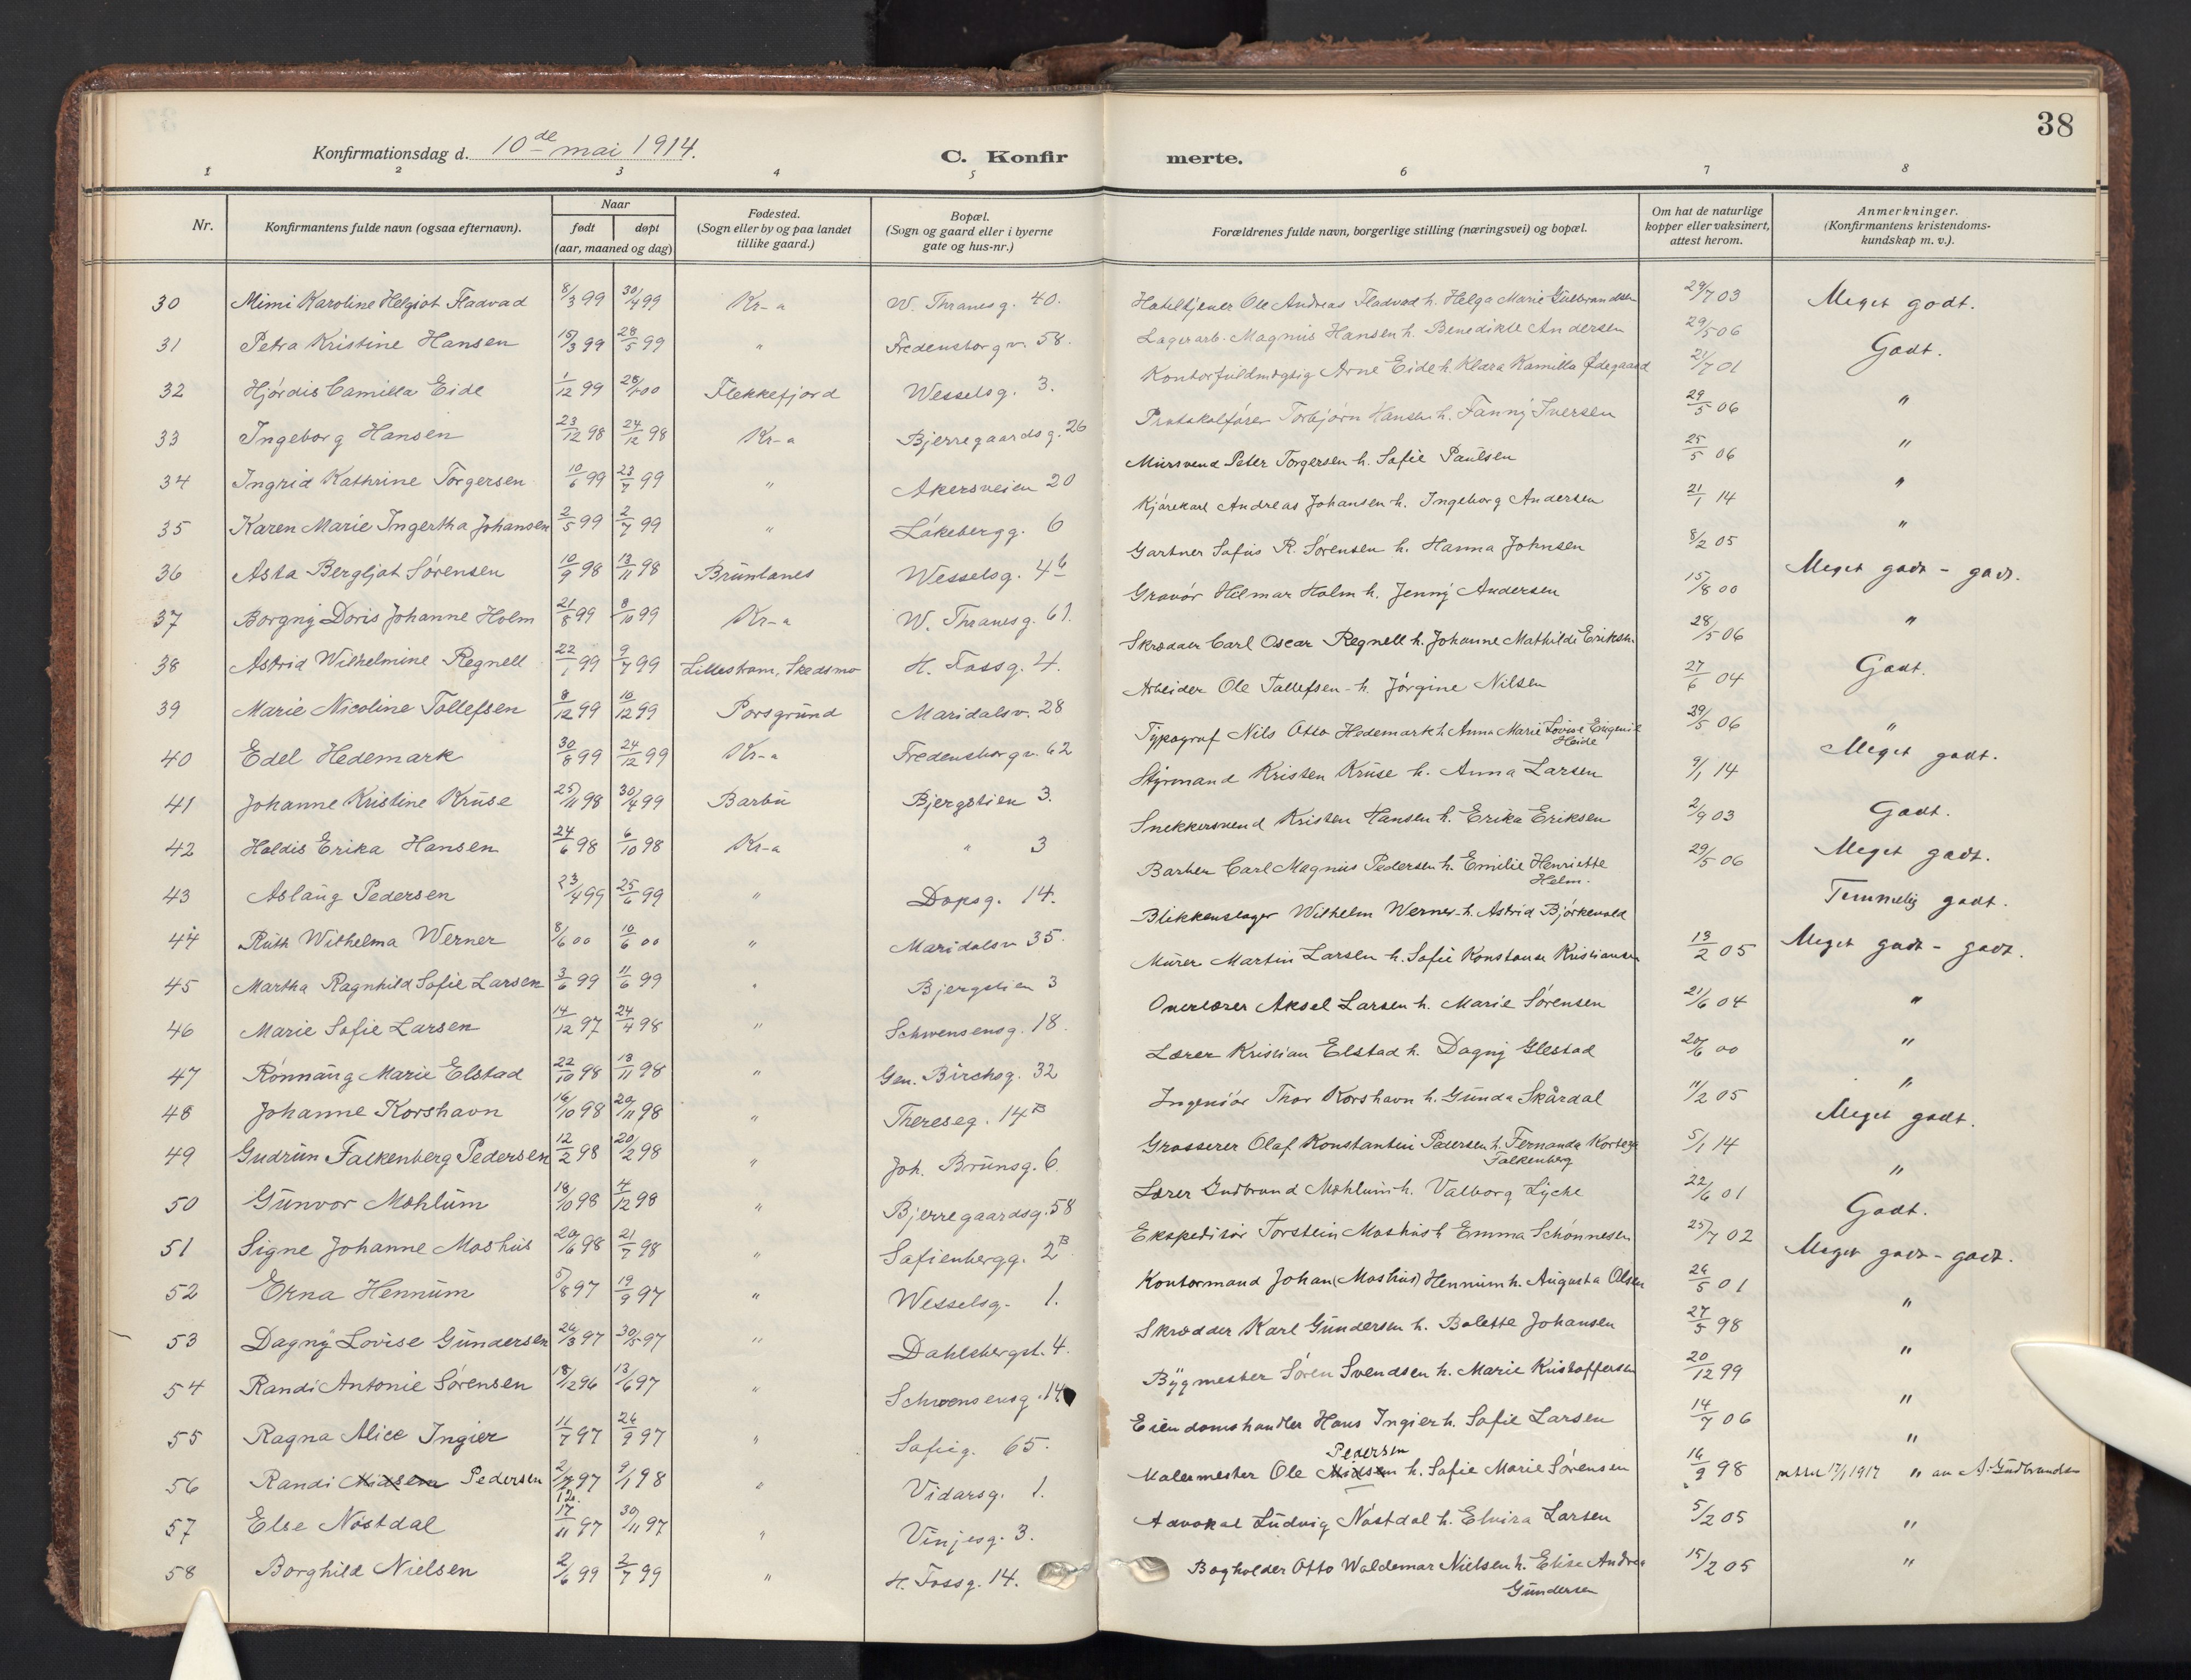 38
Konfirmationsdag d. 10de mai 1914.
C. Konfirmerte.
1 2 3 4 5 6 7 8
Nr.
Konfirmantens fulde navn (ogsaa efternavn).
Naar
født døpt
(aar, maaned og dag)
Fødested.
(Sogn eller by og paa landet
tillike gaard.)
Bopæl.
(Sogn og gaard eller i byerne
gate og hus-nr.)
Forældrenes fulde navn, borgerlige stilling (næringsvei) og bopæl.
Om hat de naturlige
kopper eller vaksinert,
attest herom.
Anmerkninger.
(Konfirmantens kristendoms-
kundskap m. v.).
30 Mimi Karoline Helgiot Fladvad 8/3 99 30/4 99 Kr-a W. Thranesg. 40. Hoteltjener Ole Andreas Fladvad h. Helga Marie Gulbrandsen 29/7 03 Meget godt.
31 Petra Kristine Hansen 15/3 99 28/5 99 " Fredensborgv. 58. Lagerarb. Magnus Hansen h. Benedikte Andersen 29/5 06 Godt.
32 Hjördis Camilla Eide 1/12 99 Flekkefjord Wesselsg. 3. Kontorfuldmægtig Arne Eide h. Klara Kamilla Ødegaard 21/7 01 "
33 Ingeborg Hansen 23/12 98 24/12 98 Kr-a Bjerregaardsg. 26 Protokolfører Torbjørn Hansen h. Fanny Iversen 29/5 06 "
34 Ingrid Kathrine Torgersen 10/6 99 23/7 99 " Akersveien 20 Mursvend Peter Torgersen h. Sofie Paulsen 25/5 06 "
35 Karen Marie Ingertha Johansen 2/5 99 2/7 99 " Løkebergg. 6 Kjørekarl Andreas Johansen h. Ingeborg Andersen 21/1 14 "
36 Asta Bergljot Sørensen 10/9 98 13/11 98 Brunlanes Wesselsg. 4b Gartner Sofus R. Sørensen h. Hanna Johnsen 8/2 05 Meget godt - godt.
37 Borgny Doris Johanne Holm 21/8 99 8/10 99 Kr-a W. Thranesg. 61. Gravør Hilmar Holm h. Jenny Andersen 15/8 00 "
38 Astrid Wilhelmine Regnell 22/1 99 9/7 99 Lillestrøm, Skedsmo H. Fossg. 4. Skrædder Carl Oscar Regnell h. Johanne Mathilde Eriksen 28/5 06 Godt.
39 Marie Nicoline Tollefsen 8/12 99 10/12 99 Porsgrund Maridalsv. 28 Arbeider Ole Tollefsen h. Jørgine Nilsen 27/6 04 "
40 Edel Hedemark 30/8 99 24/12 99 Kr-a Fredensborgv. 62 Typograf Nils Otto Hedemark h. Anna Marie Lovise Eugenie Heide 29/5 06 Meget godt.
41 Johanne Kristine Kruse 25/11 98 30/4 99 Barbu Bjergstien 3. Styrmand Kristen Kruse h. Anna Larsen 9/1 14 Godt.
42 Haldis Erika Hansen 24/6 98 6/10 98 Kr-a " 3 Snekkersvend Kristen Hansen h. Erika Eriksen 2/9 03 Meget godt.
43 Aslaug Pedersen 23/4 99 25/6 99 " Dopsg. 14. Barber Carl Magnus Pedersen h. Emilie Henriette Helm. 29/5 06 Temmelig godt.
44 Ruth Wilhelma Werner 8/6 00 10/6 00 " Maridalsv. 35. Blikkenslager Wilhelm Werner h. Astrid Bjørkevold 13/2 05 Meget godt - godt.
45 Martha Ragnhild Sofie Larsen 3/6 99 11/6 99 " Bjergstien 3 Murer Martin Larsen h. Sofie Konstanse Kristiansen 21/6 04 "
46 Marie Sofie Larsen 14/12 97 24/4 98 " Schwensensg. 18. Overlærer Aksel Larsen h. Marie Sørensen 20/6 00 "
47 Rønnaug Marie Elstad 22/10 98 13/11 98 " Gen. Birchsg. 32 Lærer Kristian Elstad h. Dagny Glestad 11/2 05 "
48 Johanne Korshavn 16/10 98 20/11 98 " Thereseg. 14B Ingeniør Thor Korshavn h. Gunda Skårdal Meget godt.
49 Gudrun Falkenberg Pedersen 12/2 98 20/2 98 " Joh. Brunsg. 6. Grosserer Olaf Konstantin Pedersen h. Fernanda Falkenberg 5/1 14 "
50 Gunvor Mohlum 18/10 98 4/12 98 " Bjerregaardsg. 58 Lærer Gudbrand Mohlum h. Valborg Lyche 22/6 01 Godt.
51 Signe Johanne Moshus 20/6 98 21/7 98 " Sofienbergg. 2B. Ekspeditør Torstein Moshus h. Emma Schønnesen 25/7 02 Meget godt - godt.
52 Erna Hennum 5/8 97 19/9 97 " Wesselsg. 1. Kontormand Johan (Moshus) Hennum h. Augusta Olsen 26/5 01 "
53 Dagny Lovise Gundersen 26/3 97 30/5 97 " Dahlsbergst. 4. Skrædder Karl Gundersen h. Bolette Johansen 27/5 98 "
54 Randi Antonie Sørensen 18/12 96 13/6 97 " Schwensensg. 14 Bygmester Søren Svendsen h. Marie Kristoffersen 20/12 99 "
55 Ragna Alice Ingier 11/7 97 26/9 97 " Sofieg. 65. Eiendomshandler Hans Ingier h. Sofie Larsen 14/7 06 "
56 Randi Pedersen 97 9/1 98 " Vidarsg. 1. Malermester Ole Pedersen h. Sofie Marie Sørensen 16/9 98 1917 " av A. Gudbrandsen
57 Else Nøstdal 17/11 97 30/11 97 " Vinjesg. 3. Advokat Ludvig Nøstdal h. Elvira Larsen 5/2 05 "
58 Borghild Nielsen 2/6 99 2/7 99 " H. Fossg. 14. Bogholder Otto Waldemar Nielsen h. Elise Andrea Gundersen 15/2 05 "